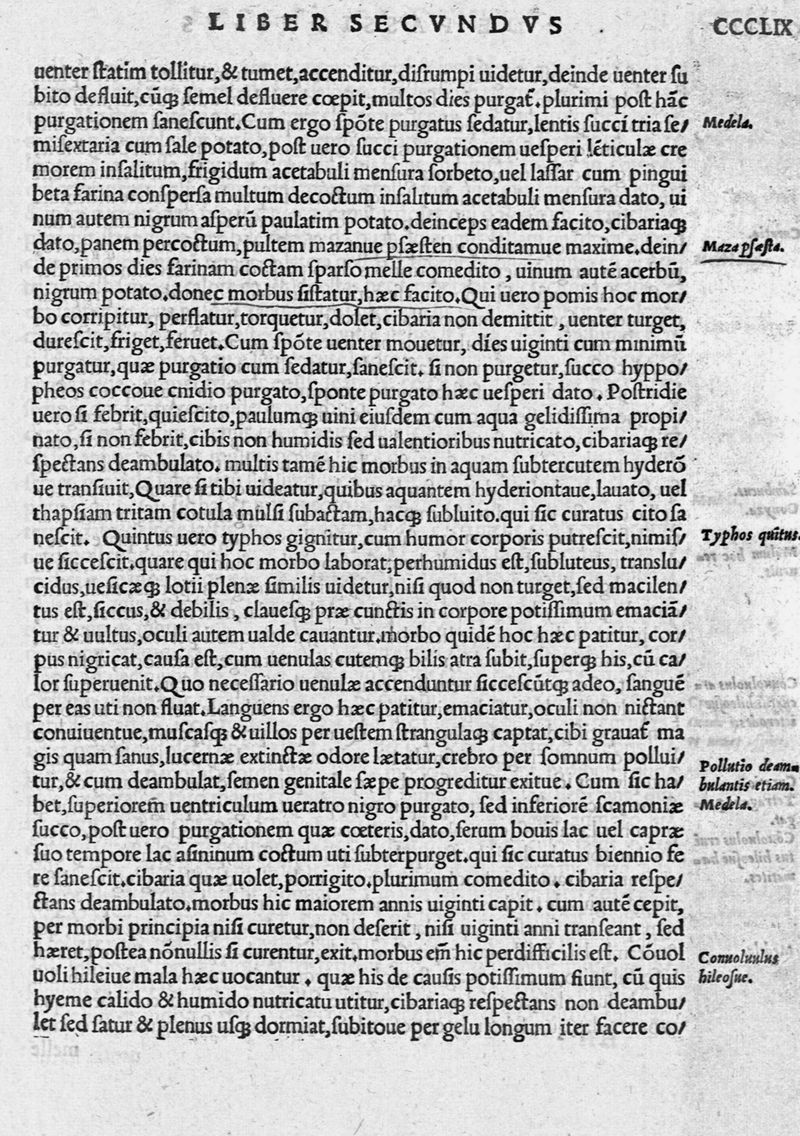 LIBER SECVNDVS
CCCLIX
uenter ſtatim tollitur,& tumet,accenditur,diſrumpi uidetur,deinde uenter ſu
bito defluit,cūq; ſemel defluere cœpit,multos dies purgat̃.plurimi poſt hāc
purgationem ſaneſcunt.Cum ergo ſpōte purgatus ſedatur,lentis ſucci tria ſe/
Medela.
miſextaria cum ſale potato,poſt uero ſucci purgationem ueſperi lēticulæ cre
morem inſalitum,frigidum acetabuli menſura ſorbeto,uel laſſar cum pingui
beta farina conſperſa multum decoctum inſalitum acetabuli menſura dato, ui
num autem nigrum aſperū paulatim potato.deinceps eadem facito,cibariaq;
dato,panem percoctum,pultem mazanue pſæſten conditamue maxime.dein/
Maza pſæſta.
de primos dies farinam coctam ſparſo melle comedito , uinum autē acerbū,
nigrum potato.donec morbus ſiſtatur,hæc facito.Qui uero pomis hoc mor/
bo corripitur, perflatur,torquetur,dolet,cibaria non demittit , uenter turget,
dureſcit,friget,feruet.Cum ſpōte uenter mouetur, dies uiginti cum minimū
purgatur,quæ purgatio cum ſedatur,ſaneſcit. ſi non purgetur,ſucco hyppo/
pheos coccoue cnidio purgato,ſponte purgato hæc ueſperi dato . Poſtridie
uero ſi febrit,quieſcito,paulumq; uini eiuſdem cum aqua gelidiſſima propi/
nato,ſi non febrit,cibis non humidis ſed ualentioribus nutricato,cibariaq; re/
ſpectans deambulato. multis tamē hic morbus in aquam ſubtercutem hyderō
ue tranſiuit,Quare ſi tibi uideatur,quibus aquantem hyderiontaue,lauato, uel
thapſiam tritam cotula mulſi ſubactam,hacq; ſubluito.qui ſic curatus cito ſa
neſcit. Quintus uero typhos gignitur,cum humor corporis putreſcit,nimiſ/
Typhos quītus.
ue ſicceſcit.quare qui hoc morbo laborat,perhumidus eſt,ſubluteus, tranſlu/
cidus,ueſicæq; lotii plenæ ſimilis uidetur,niſi quod non turget,ſed macilen/
tus eſt,ſiccus,& debilis , claueſq; præ cunctis in corpore potiſſimum emaciā/
tur & uultus,oculi autem ualde cauantur.morbo quidē hoc hæc patitur, cor/
pus nigricat,cauſa eſt,cum uenulas cutemq; bilis atra ſubit,ſuperq; his,cū ca/
lor ſuperuenit.Quo neceſſario uenulæ accenduntur ſicceſcūtq; adeo, ſanguē
per eas uti non fluat.Languens ergo hæc patitur,emaciatur,oculi non niſtant
conuiuentue,muſcaſq; & uillos per ueſtem ſtrangulaq; captat,cibi grauat̃ ma
gis quam ſanus,lucernæ extinctæ odore lætatur,crebro per ſomnum pollui/
Pollutio deam=
tur,& cum deambulat,ſemen genitale ſæpe progreditur exitue . Cum ſic ha/
bulantis etiam.
bet,ſuperiorem uentriculum ueratro nigro purgato, ſed inferiorē ſcamoniæ
Medela.
ſucco,poſt uero purgationem quæ cœteris,dato,ſerum bouis lac uel capræ
ſuo tempore lac aſininum coctum uti ſubterpurget.qui ſic curatus biennio fe
re ſaneſcit.cibaria quæ uolet,porrigito.plurimum comedito . cibaria reſpe/
ctans deambulato.morbus hic maiorem annis uiginti capit . cum autē cepit,
per morbi principia niſi curetur,non deſerit , niſi uiginti anni tranſeant , ſed
hæret,poſtea nōnullis ſi curentur,exit.morbus em̄ hic perdifficilis eſt. Cōuol
Conuoluulus
uoli hileiue mala hæc uocantur . quæ his de cauſis potiſſimum fiunt, cū quis
hileoſue.
hyeme calido & humido nutricatu utitur,cibariaq; reſpectans non deambu/
let ſed ſatur & plenus uſq; dormiat,ſubitoue per gelu longum iter facere co/